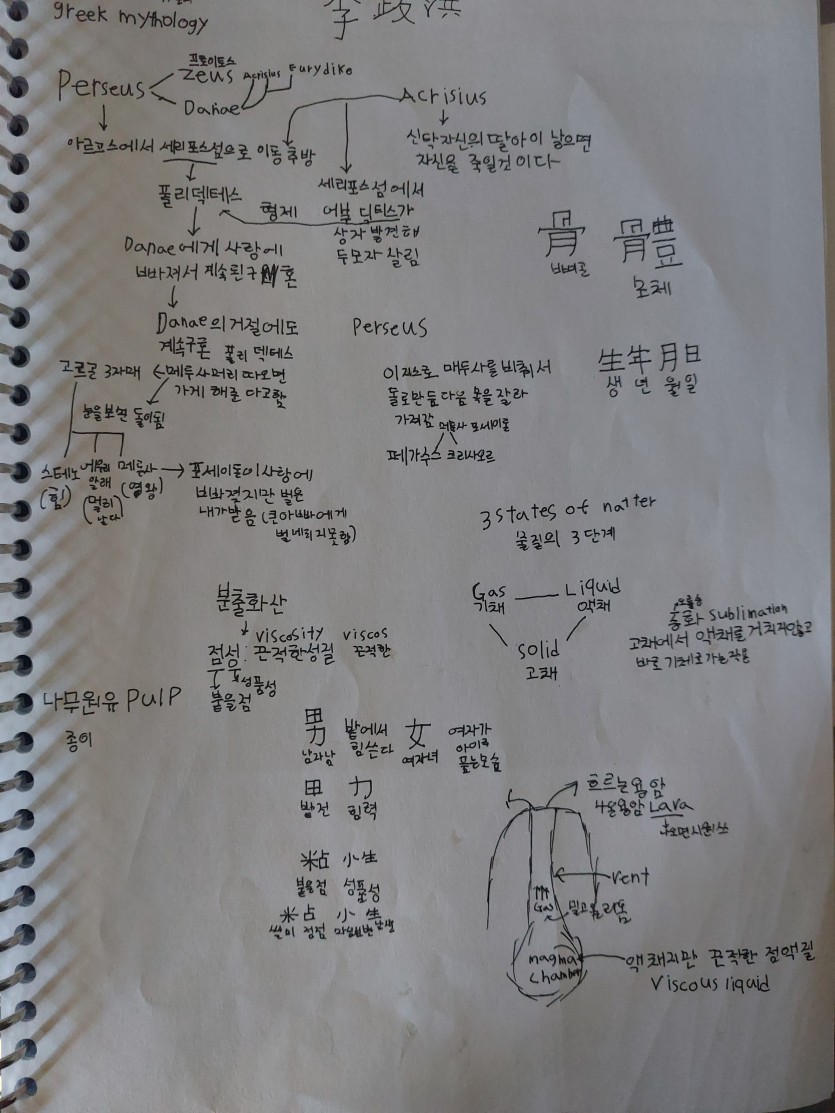 greek mythology
李政洪
프로이토스
Perseus
Zeus
Acrisius
Eurydike
Danae
Acrisius
아르고스에서 세리포스섬으로 이동 추방
신탁 자신의 딸아이 낳으면
자신을 죽일것이다
폴리덱테스
형제
세리포스섬에서
어부 딕티스가
상자 발견해
두모자 살림
Danae에게 사랑에
빠져서 계속된구혼
骨
뼈골
體
몸체
Danae의 거절에도
계속구혼 폴리덱테스
Perseus
고르곤 3자매
메두사머리 따오면
가게 해준다고함
눈을보면 돌이됨
이지스로 매두사를 비춰서
돌로만듬 다음 목을 잘라
가져감
메두사 포세이돈
페가수스 크리사오르
生年月日
생 년 월 일
스테노
(힘)
에우리
알래
(멀리
난다)
메두사
(여왕)
포세이돈이 사랑에
빠졌지만 벌은
내가받음 (큰아빠에게
벌 내리지못함)
3 states of natter
물질의 3단계
Gas
기채
Liquid
액채
Solid
고채
오를승
승화 sublimation
고채에서 액채를 거치지않고
바로 기체로가는작용
분출화산
viscosity
viscos
점성: 끈적한성질
끈적한
성품성
붙을점
나무원유 Pulp
종이
男
남자남
밭에서
힘쓴다
女
여자녀
여자가
아이를
품는모습
田 力
밭전 힘력
粘 性
붙을점 성품성
米占 小生
쌀미 점점
흐르는용암
나온용암 Lava
vent
Gas
밀고올라옴
magma
chamber
액채지만 끈적한 점액질
Viscous liquid